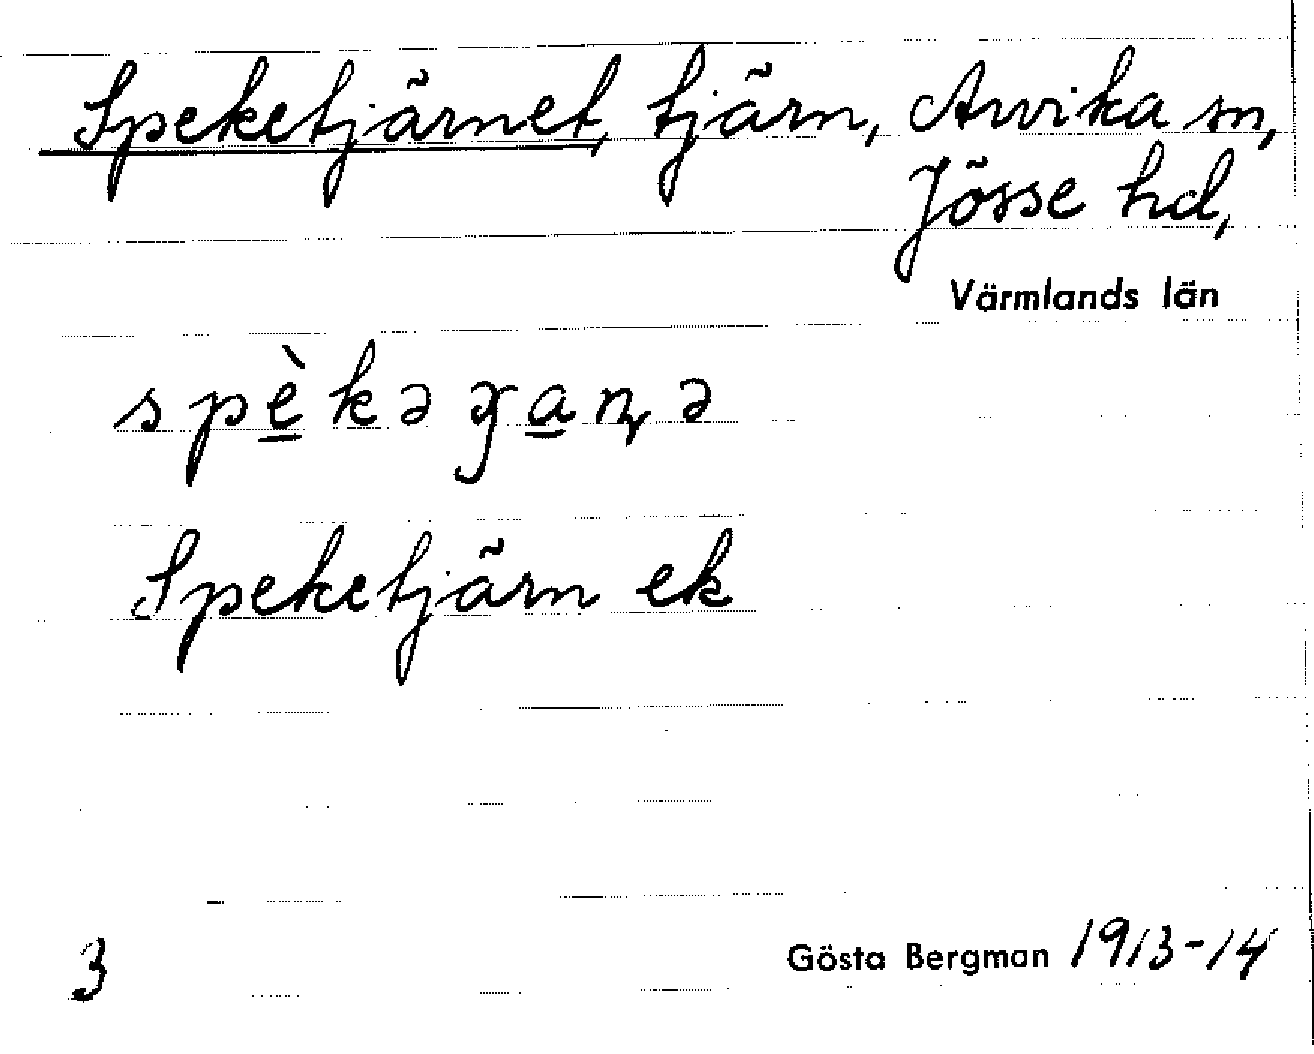 Speketjärnet, tjärn, Arvika sn,
Jösse hd,
Värmlands län
Speketjärn ek
3
Gösta Bergman 1913-14